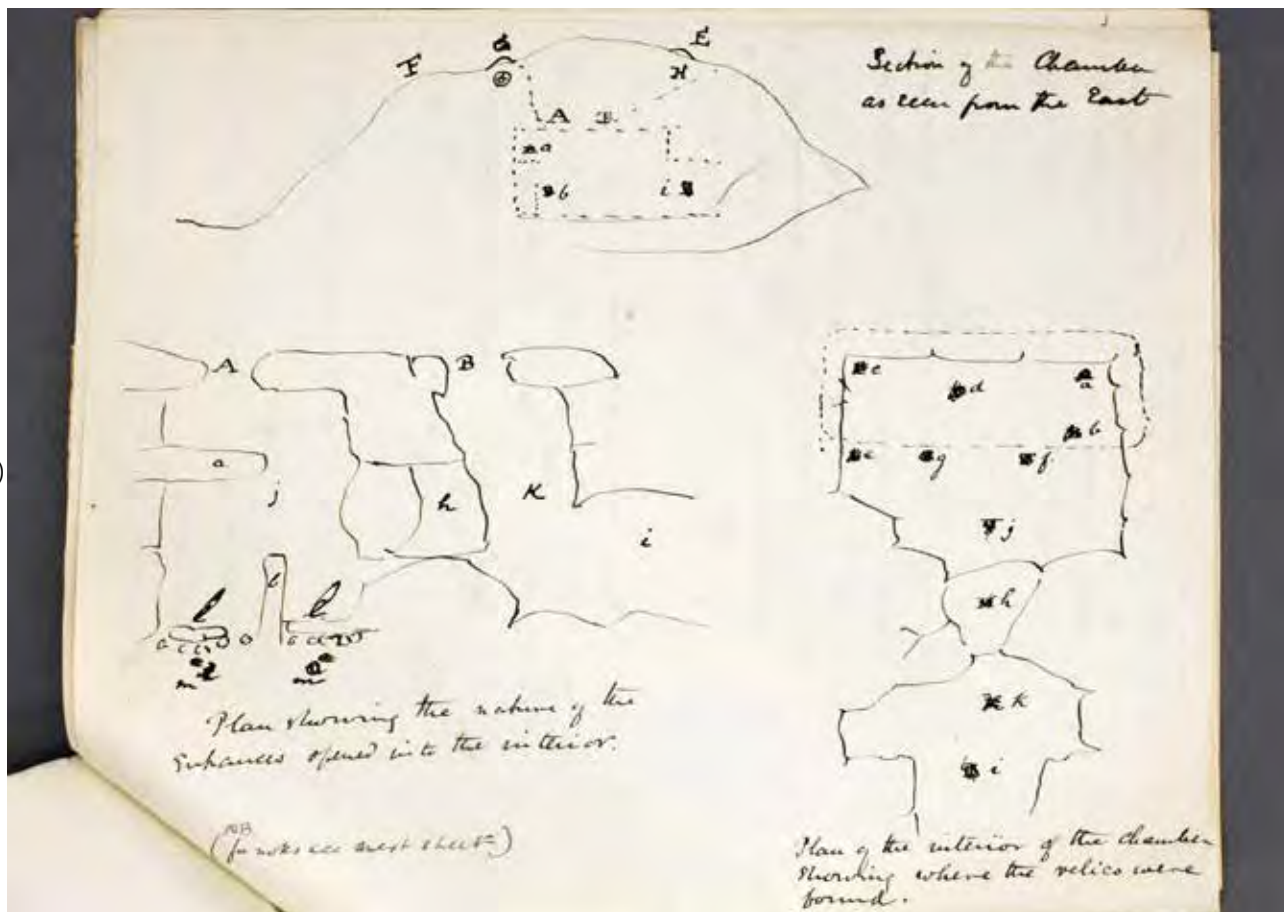 Section of the Chamber
as seen from the East
F
G
E
H
A B
a
b
i
A
B
a
j
h
K
i
l
l
m
m
Plan showing the nature of the
Entrances opened into the interior.
(NB
for notes see next sheet)
c
d
a
b
e
g
f
j
h
k
i
Plan of the interior of the Chamber
showing where the relics were
found.